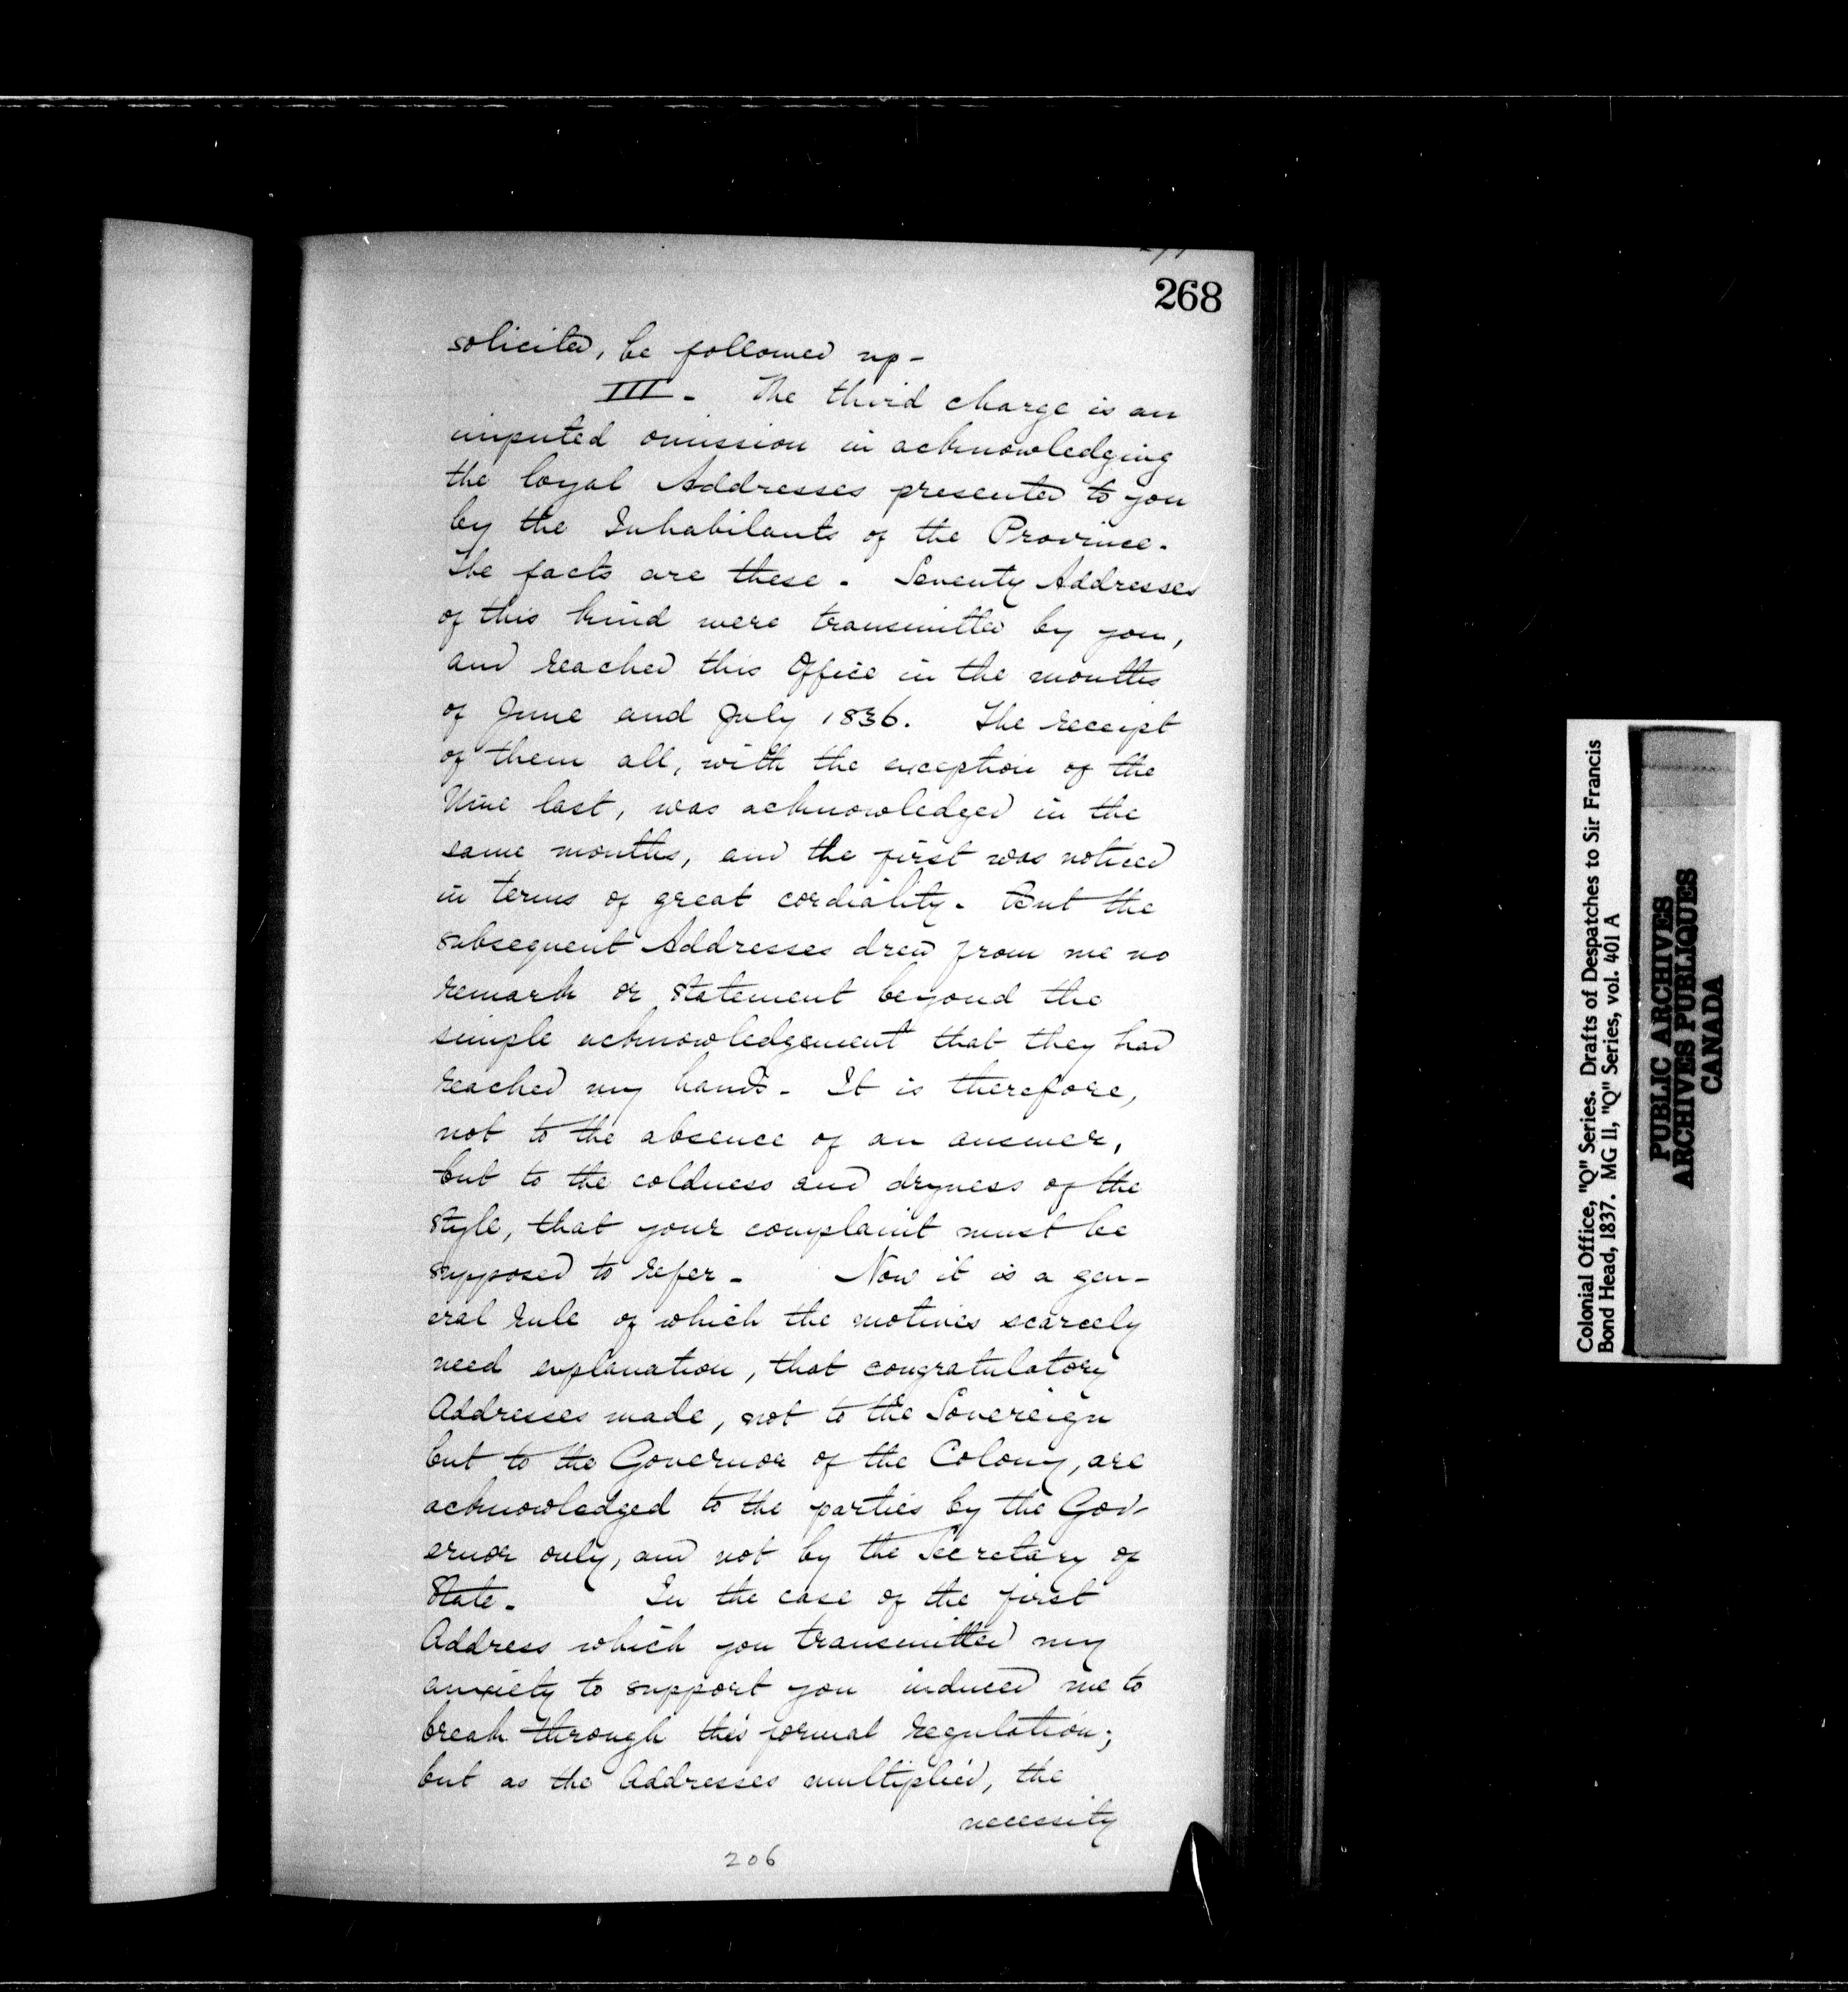 268
solicited, be followed up -
III - The third charge is an
imputed omission in acknowledging
the loyal Addresses presented to you
by the Inhabitants of the Province.
The facts are these. Seventy Addresses
of this kind were transmitted by you,
and reached this Office in the months
of June and July 1836. The receipt
of them all, with the exception of the
Nine last, was acknowledged in the
same months, and the first was noticed
in terms of great cordiality. But the
subsequent Addresses drew from me no
remark or statement beyond the
simple acknowledgement that they had
reached my hands. It is therefore,
not to the absence of an answer,
but to the coldness and dryness of the
style, that your complaint must be
supposed to refer - Now it is a gen-
eral rule of which the motives scarcely
need explanation, that congratulatory
Addresses made, not to the Sovereign
but to the Governor of the Colony, are
acknowledged to the parties by the Gov-
ernor only, and not by the Secretary of
State. In the case of the first
Address which you transmitted my
anxiety to support you induced me to
break through this formal regulation;
but as the Addresses multiplied, the
necessity
206
Colonial Office, "Q" Series. Drafts of Despatches to Sir Francis
Bond Head, 1837. MG 11, "Q" Series, vol. 401 A
PUBLIC ARCHIVES
ARCHIVES PUBLIQUES
CANADA